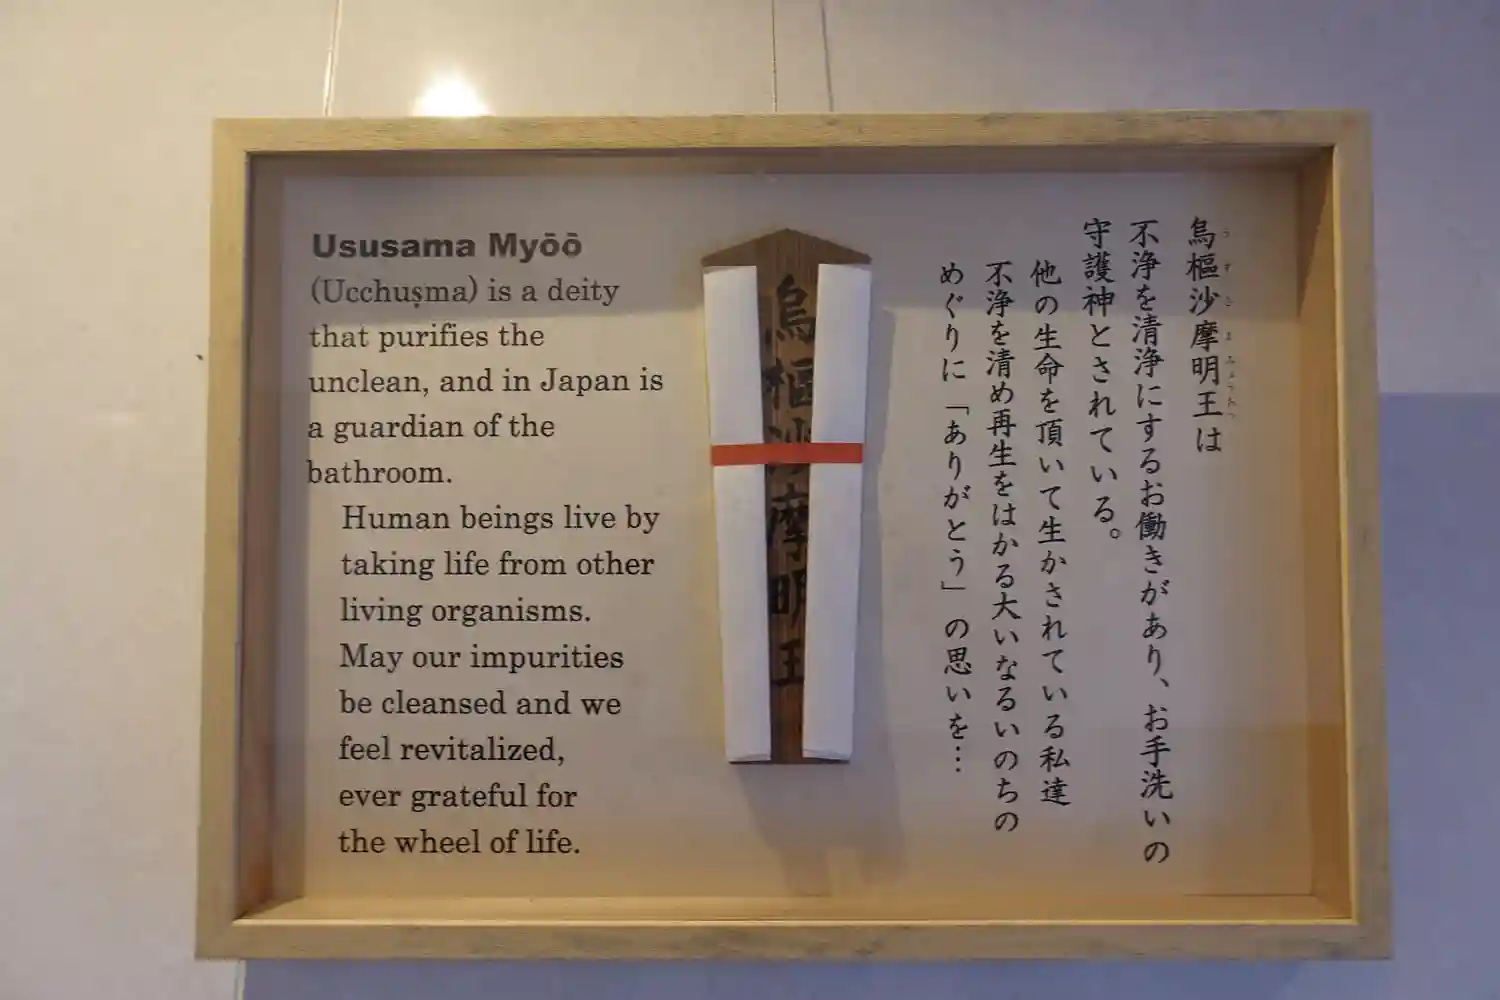 Ususama Myōō
(Ucchuṣma) is a deity
that purifies the
unclean, and in Japan is
a guardian of the
bathroom.
Human beings live by
taking life from other
living organisms.
May our impurities
be cleansed and we
feel revitalized,
ever grateful for
the wheel of life.
烏樞沙摩明王
烏樞沙摩明王は
不浄を清浄にするお働きがあり、お手洗いの
守護神とされている。
他の生命を頂いて生かされている私達
不浄を清め再生をはかる大いなるいのちの
めぐりに「ありがとう」の思いを…